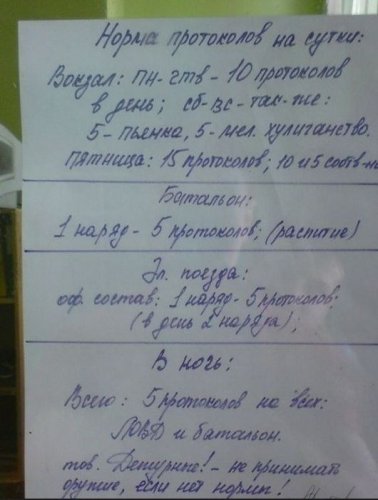 Норма протоколов на сутки:
Вокзал: пн-чтв - 10 протоколов
в день; сб-вс-так-же:
5-пьянка, 5-мел. хулиганство.
пятница: 15 протоколов; 10 и 5 соотв-но
Батальон:
1 наряд - 5 протоколов; (распитие)
Эл. поезда:
оф. состав: 1 наряд - 5 протоколов;
(в день 2 наряда);
В ночь:
Всего: 5 протоколов на всех:
ЛОВД и батальон.
тов. Дежурные! - не принимать
оружие, если нет нормы!